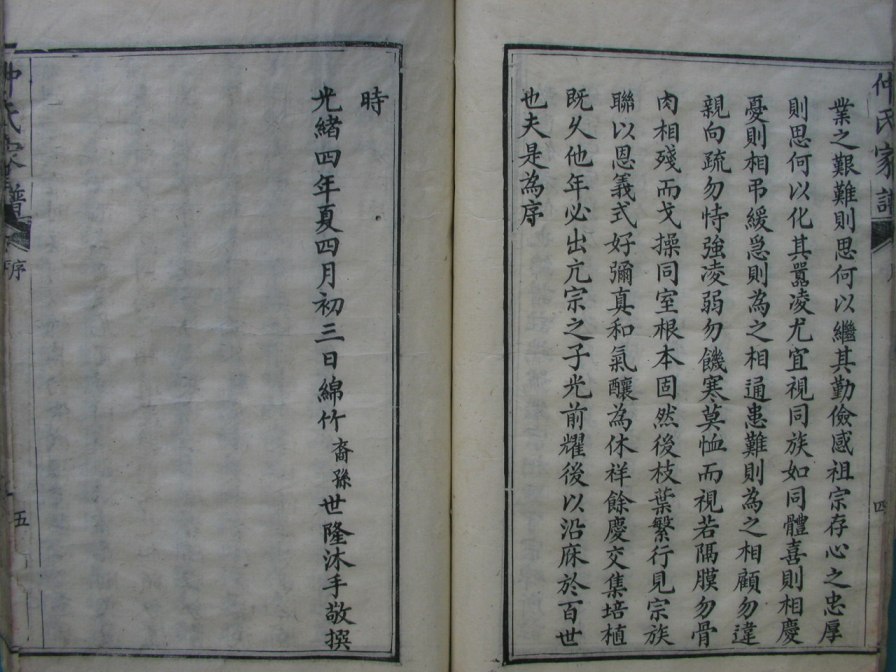 仲氏家譜
四
業之艱難則思何以繼其勤儉感祖宗存心之忠厚
則思何以化其囂凌尤宜視同族如同體喜則相慶
憂則相弔緩急則為之相通患難則為之相顧勿違
親向疏勿恃強凌弱勿饑寒莫恤而視若隔膜勿骨
肉相殘而戈操同室根本固然後枝葉繁行見宗族
聯以恩義式好彌真和氣釀為休祥餘慶交集培植
既久他年必出亢宗之子光前耀後以沿庥於百世
也夫是為序
時
光緒四年夏四月初三日綿竹裔孫世隆沐手敬撰
仲氏家譜
序
五